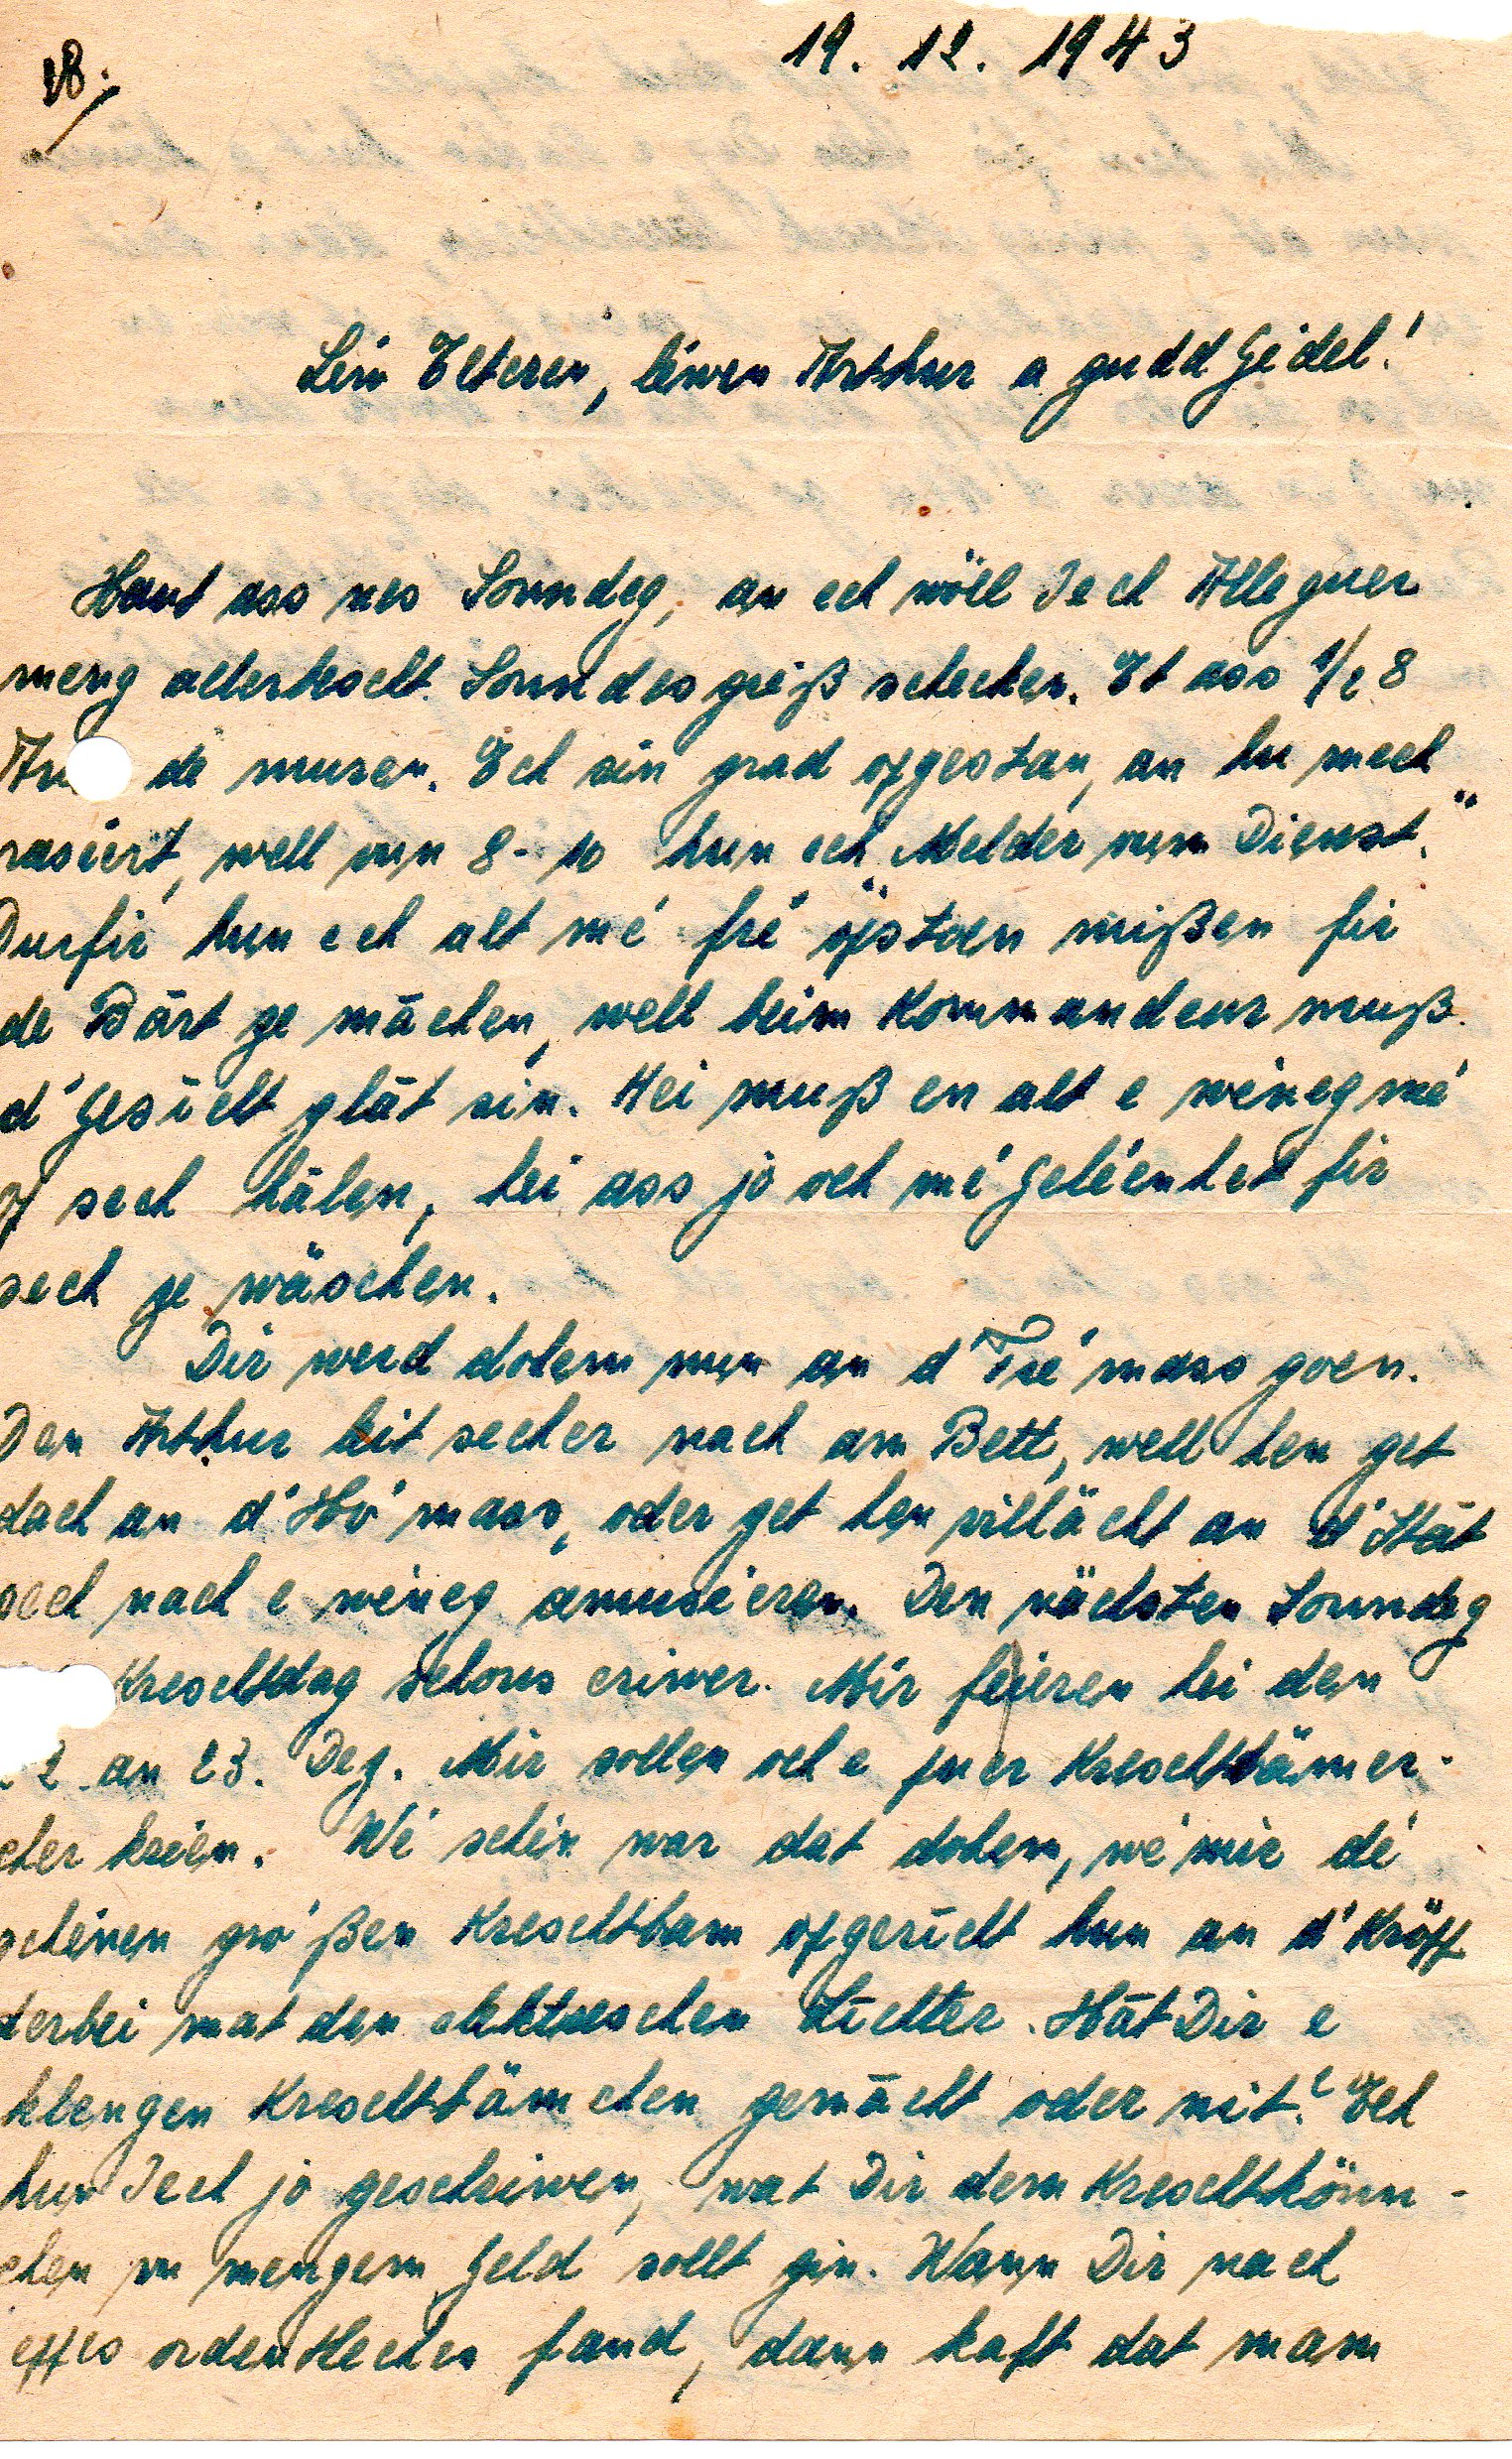 18.
19. 12. 1943
Léiw Elteren, léiwen Arthur a gudd Gidel!
Haut ass nes Sonndeg, an ech wöll Iech Alleguer
meng allerbescht Sonndesgréiß schecken. Et ass 1/2 8
de muren. Ech sin grad opgestan, an hu mech
rasiert, well vun 8-10 hun ech „Melder vum Dienst."
Durfir hun ech alt mé fré opstoen mißen fir
de Bārt ze māchen, well beim Kommandeur muß
d'Gesīcht glāt sin. Hei muß en alt e wéineg mé
op sech hālen, hei ass jo och mé Geléenhet fir
sech ze wäschen.
Dir werd dohem nun an d'Fré mass goen.
Den Arthur leit secher nach am Bett, well hen get
dach an d'Hó mass, oder get hen villäicht an d'Stāt
sech nach e wéineg amuséieren. Den nächsten Sonndeg
Kreschtdag schons eriwer. Mir feieren hei den
2. an 23. Dez. Mir sollen och e puer Kreschtbämer-
cher kréien. Wé schéin war dat dohem, wé mir dé
schéinen gró ßen Kreschtbam opgerīcht hun an d'Kröpp
derbei mat den elektreschen Lichter. Hāt Dir e
klengen Kreschtbämchen gemācht oder nit? Ech
hun Iech jo geschriwen, wat Dir dem Kreschtkönn-
chen vu mengem Geld sollt gin. Wann Dir nach
eppes ordentleches fand, dann kaft dat mam